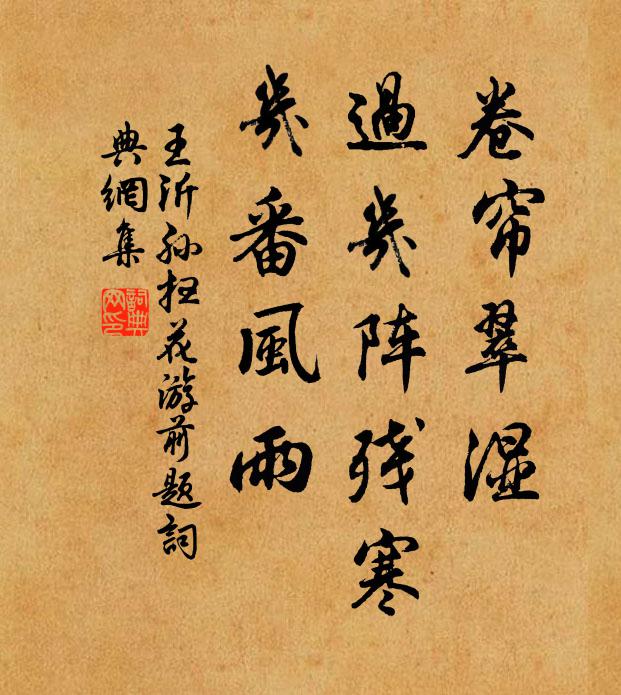 卷帘翠湿
過幾阵残寒
幾番風雨
王沂孙扫花游前题詞
典網集
詞典
网印